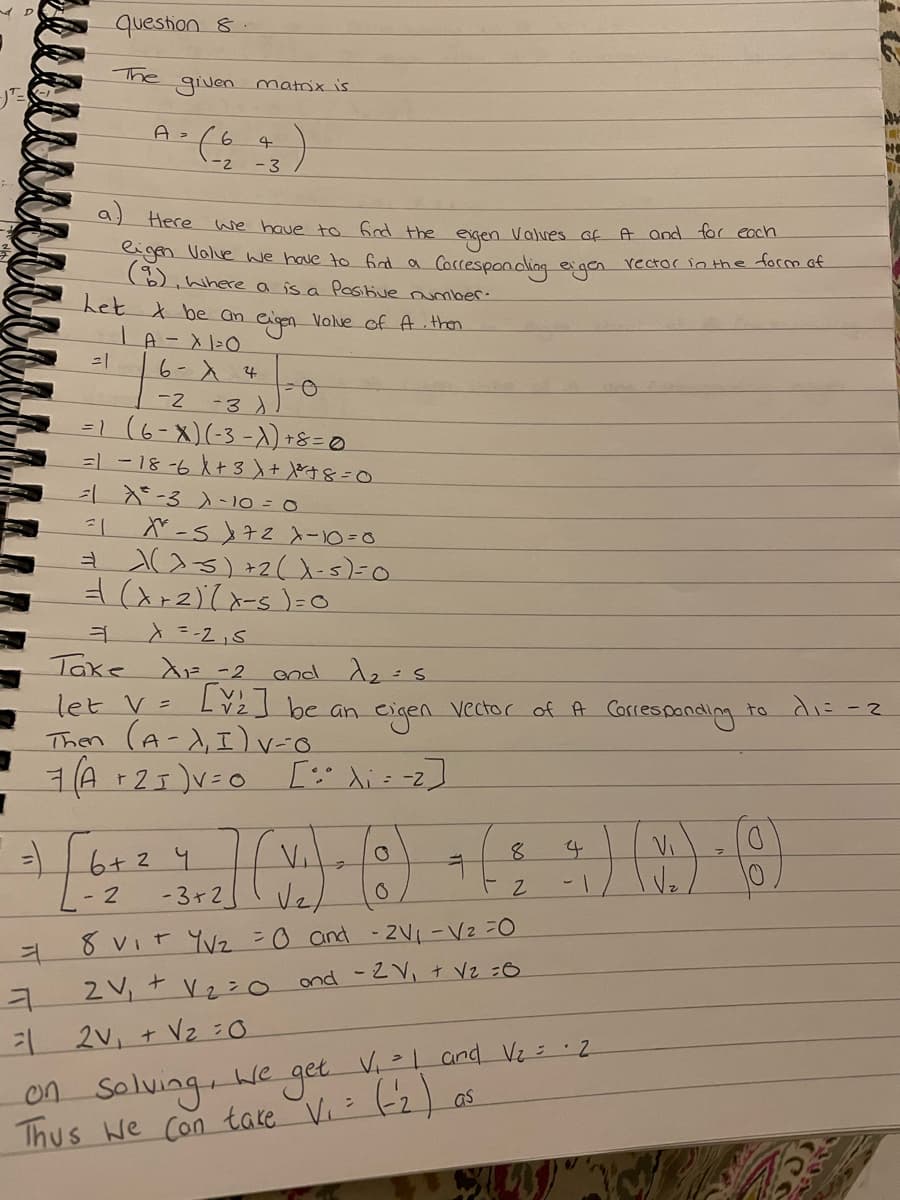 Question 8.
The given matrix is
A = ( 6 4
-2 -3 )
a) Here we have to find the eigen values of A and for each
eigen value we have to find a corresponding eigen vector in the form of
(a b), where a is a Positive number.
Let λ be an eigen value of A. then
| A - λ |=0
⇒ | 6-λ 4
-2 -3 λ | = 0
⇒ (6-λ)(-3-λ)+8=0
⇒ -18-6λ+3λ+λ²+8=0
⇒ λ²-3λ-10=0
⇒ λ²-5λ+2λ-10=0
⇒ λ(λ-5)+2(λ-5)=0
⇒ (λ+2)(λ-5)=0
⇒ λ=-2,5
Take λ1=-2 and λ2=5
let V = [V1 V2] be an eigen vector of A Corresponding to λ1=-2
Then (A-λ1I)v=0
⇒ (A+2I)v=0 [∵ λi=-2]
⇒ [6+2 4 -2 -3+2] (V1 V2) = (0 0) ⇒ (8 4 -2 -1) (V1 V2) = (0 0)
⇒ 8V1+4V2=0 and -2V1-V2=0
⇒ 2V1+V2=0 and -2V1+V2=0
⇒ 2V1+V2=0
on solving, we get V1=1 and V2=-2
Thus we can take V1=(1 -2) as